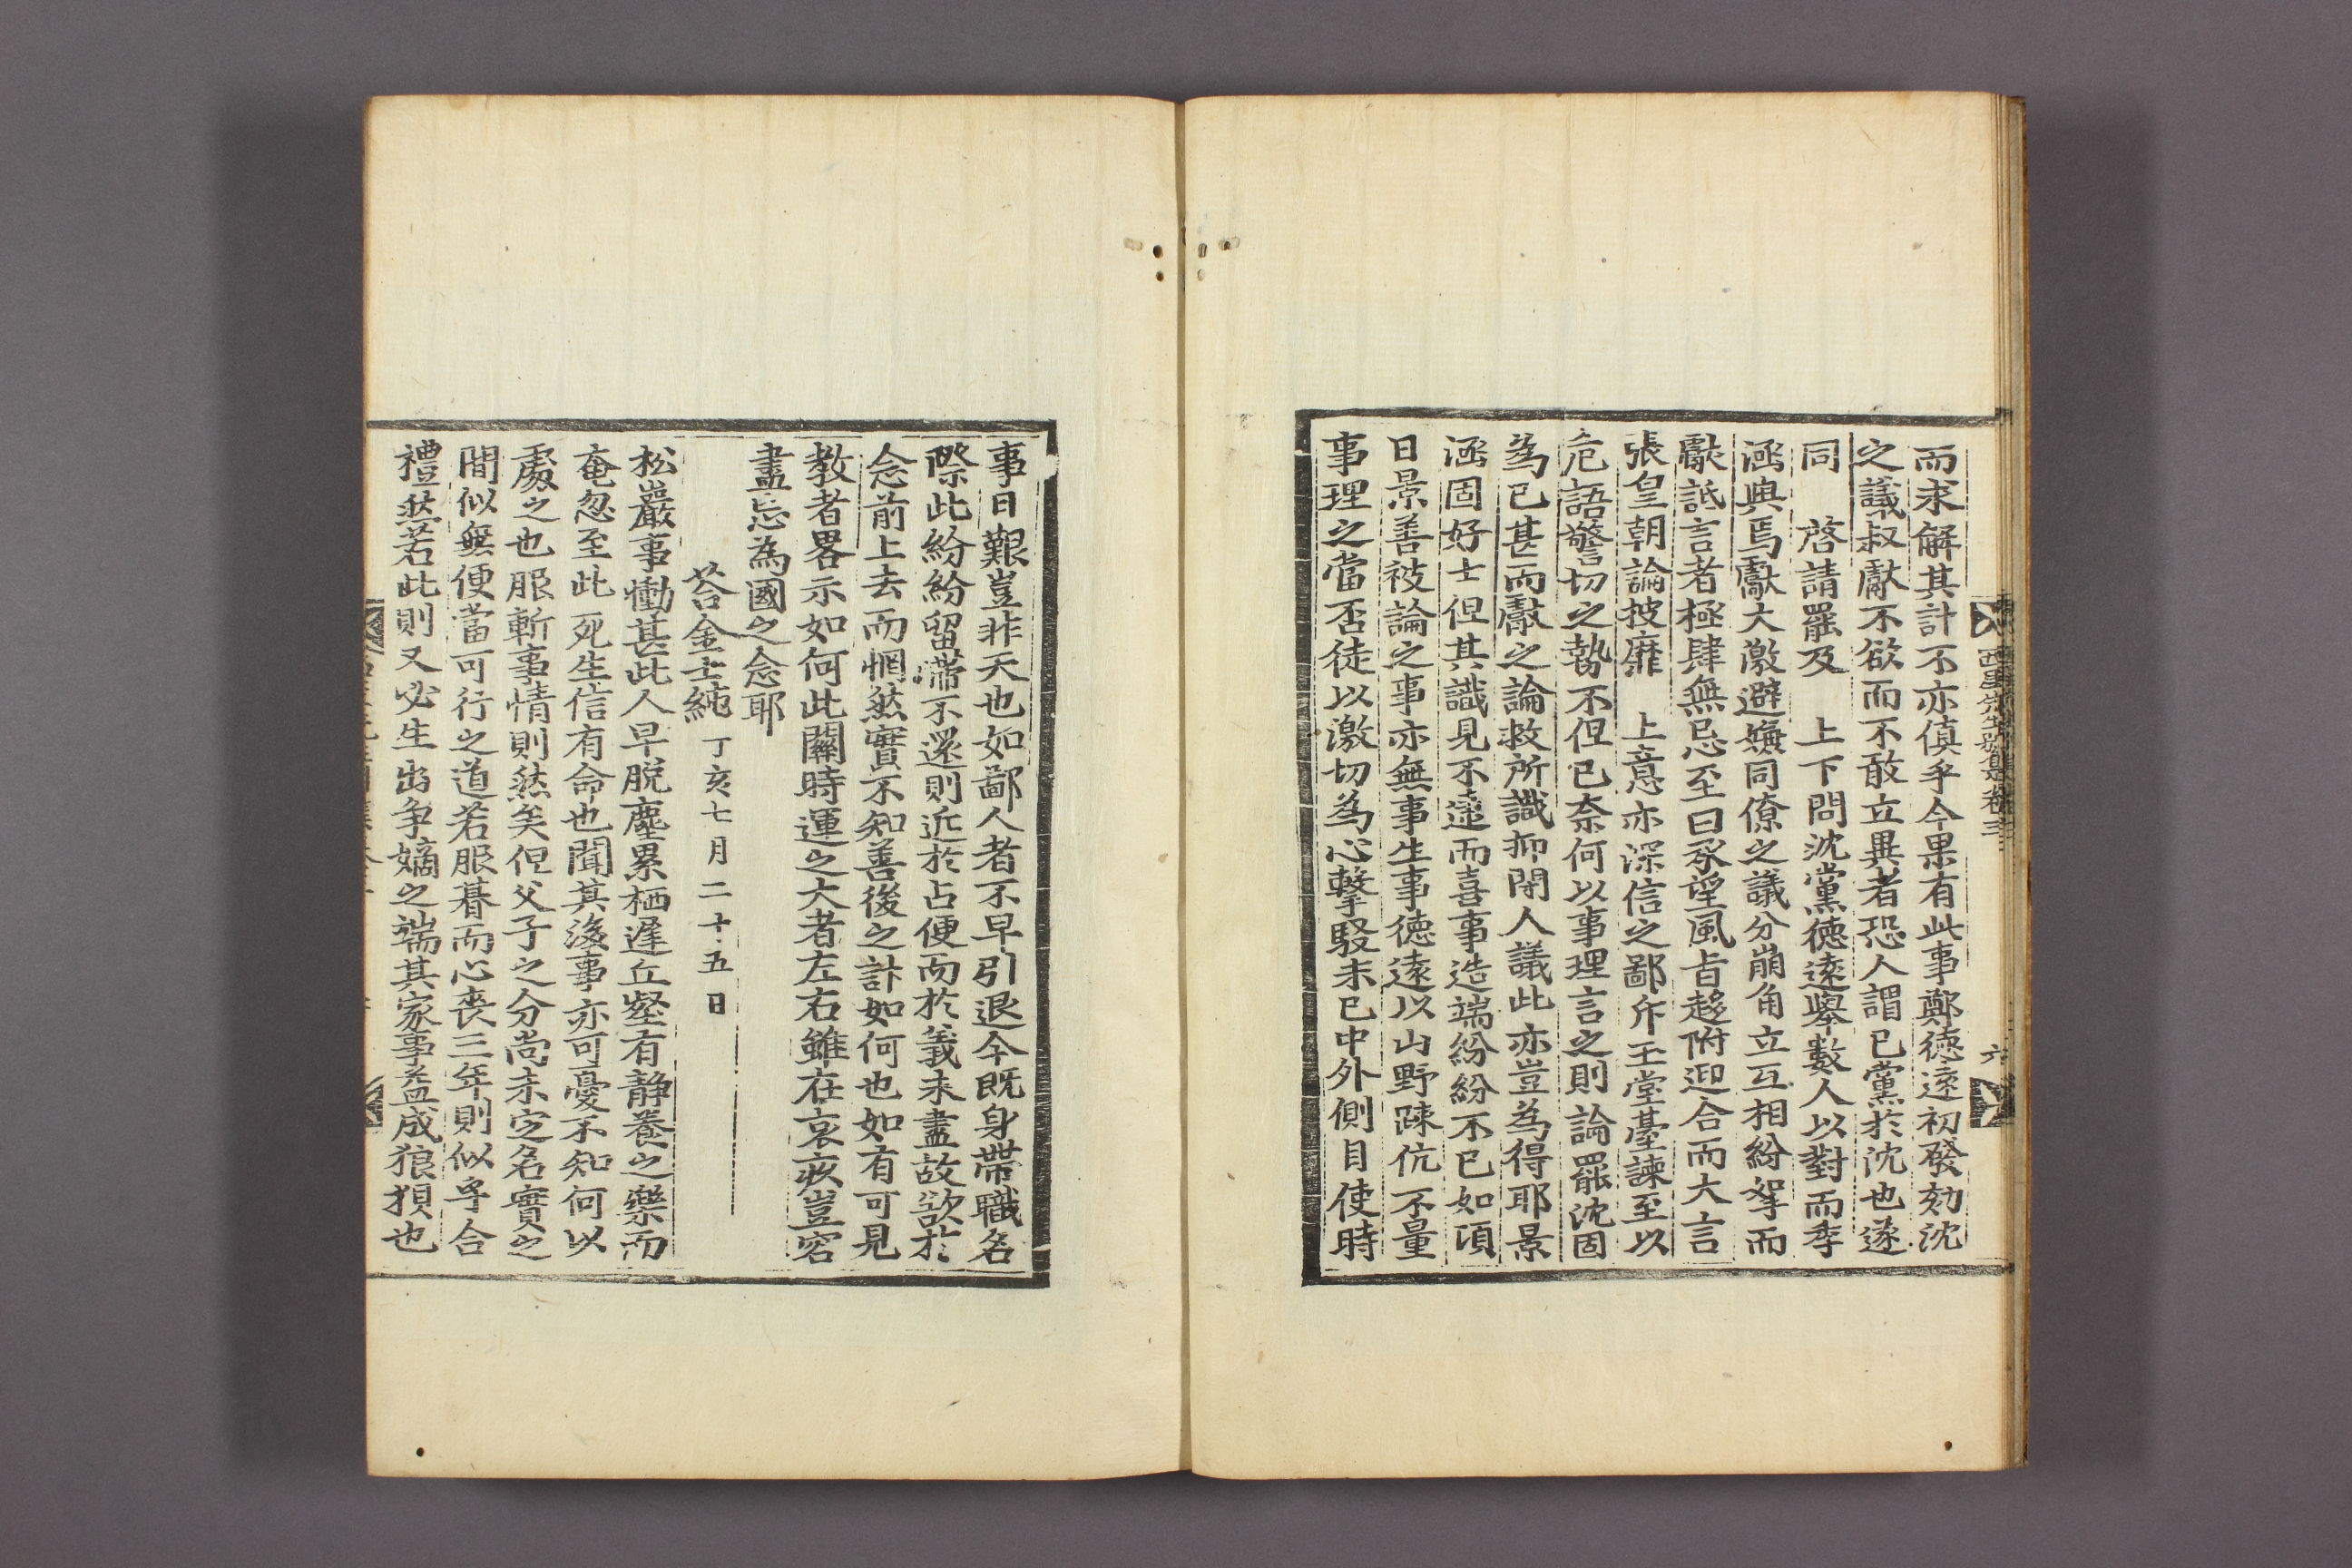 而求解其計不亦傎乎今果有此事鄭德遠初發劾沈
之議叔獻不欲而不敢立異者恐人謂已黨於沈也遂
同 啓請罷及 上下問沈黨德遠擧數人以對而季
涵與焉獻大激避嫌同僚之議分崩角立互相紛挐而
獻詆言者極肆無忌至曰承望風旨趍附迎合而大言
張皇朝論披靡 上意亦深信之鄙斥玉堂臺諫至以
危語警切之勢不但已奈何以事理言之則論罷沈固
爲已甚而獻之論救所識抑閑人議此亦豈爲得耶景
涵固好士但其識見不遠而喜事造端紛紛不已如頃
日景善被論之事亦無事生事德遠以山野踈伉不量
事理之當否徒以激切爲心擊駁未已中外側目使時
六
事日艱豈非天也如鄙人者不早引退今旣身帶職名
際此紛紛留滯不還則近於占便而於義未盡故欲於
念前上去而惘然實不知善後之計如何也如有可見
敎者畧示如何此關時運之大者左右雖在哀疚豈容
盡忘爲國之念耶
荅金士純 丁亥七月二十五日
松巖事慟甚此人早脫塵累栖遲丘壑有靜養之樂而
奄忽至此死生信有命也聞其後事亦可憂不知何以
處之也服斬事情則然矣但父子之分尚未定名實之
間似無便當可行之道若服朞而心喪三年則似乎合
禮然若此則又必生出爭嫡之端其家事益成狼狽也